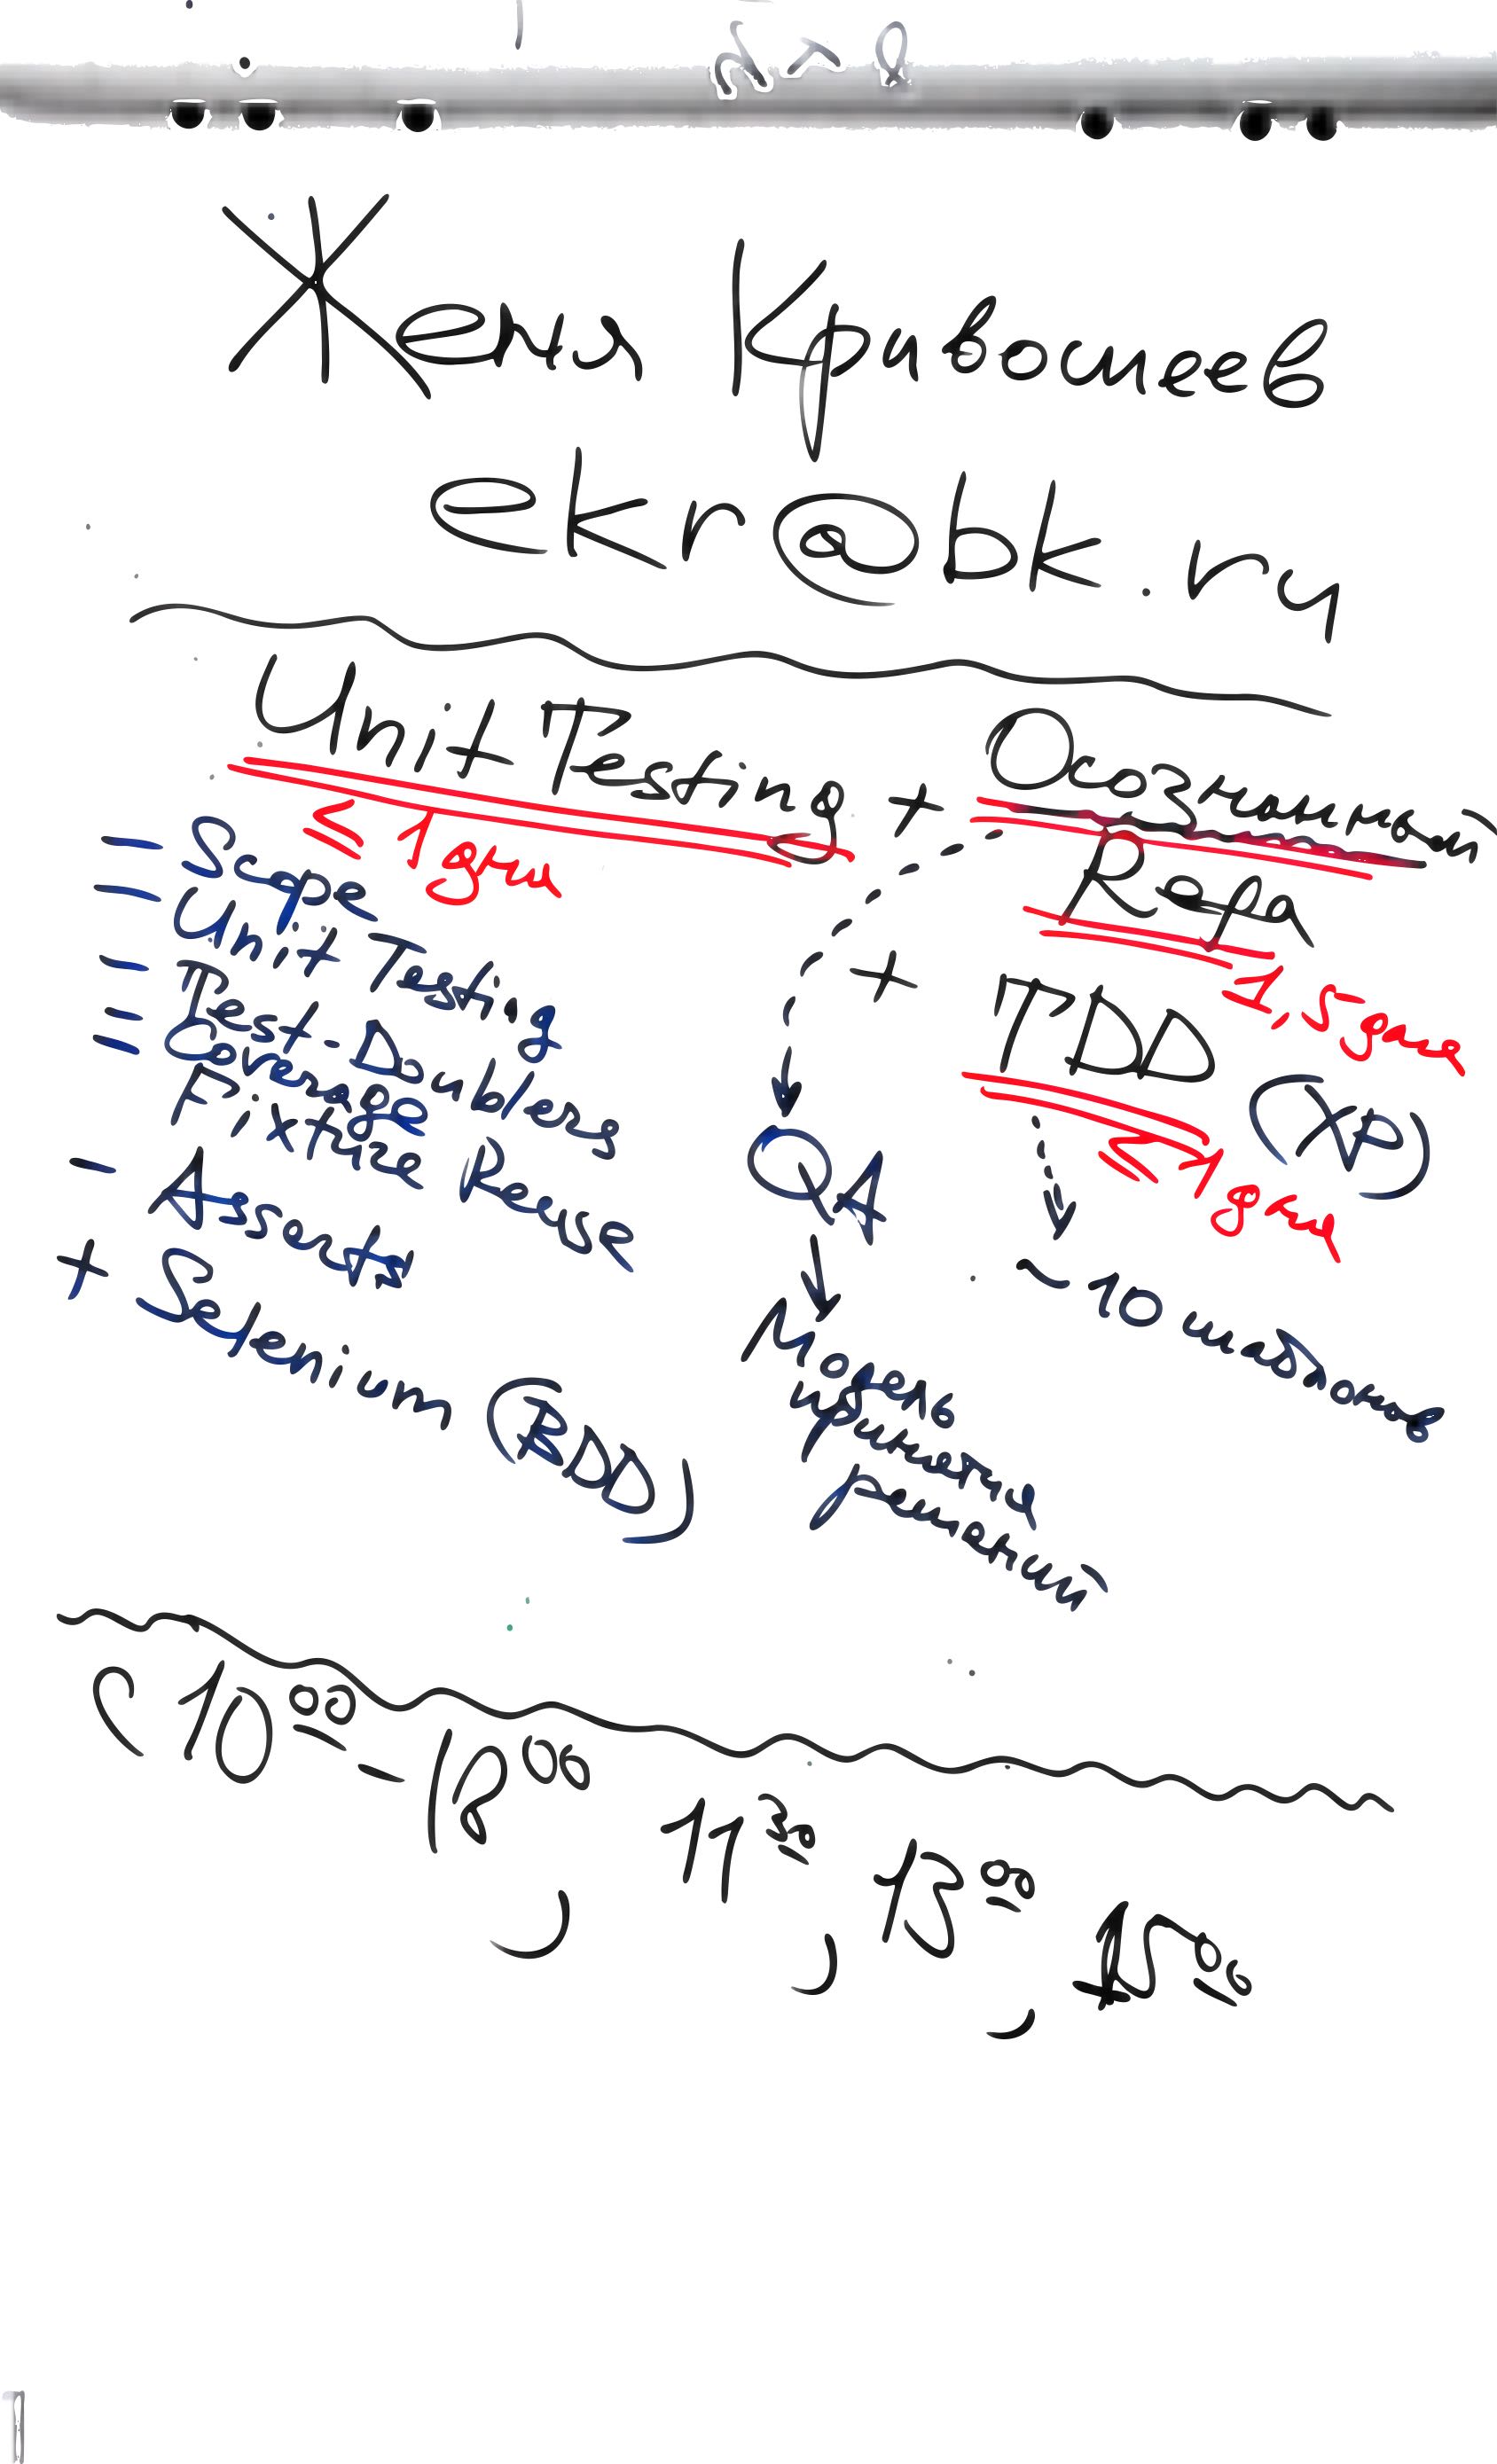 Женя Кривошеев
ekr@bk.ru
Unit Testing + Осознанный
≤ 1 дня
Refa
1,5 дня
+ TDD (XP)
≤ 1 дня
- Scope
- Unit Testing
- Test-Doubles
- Coverage
- Fixture Reuse
- Asserts
+ Selenium (BDD)
QA
Модель
принятия
решений
~ 10 шаблонов
с 10 00 - 18 00
11 30, 13 00, 15 00